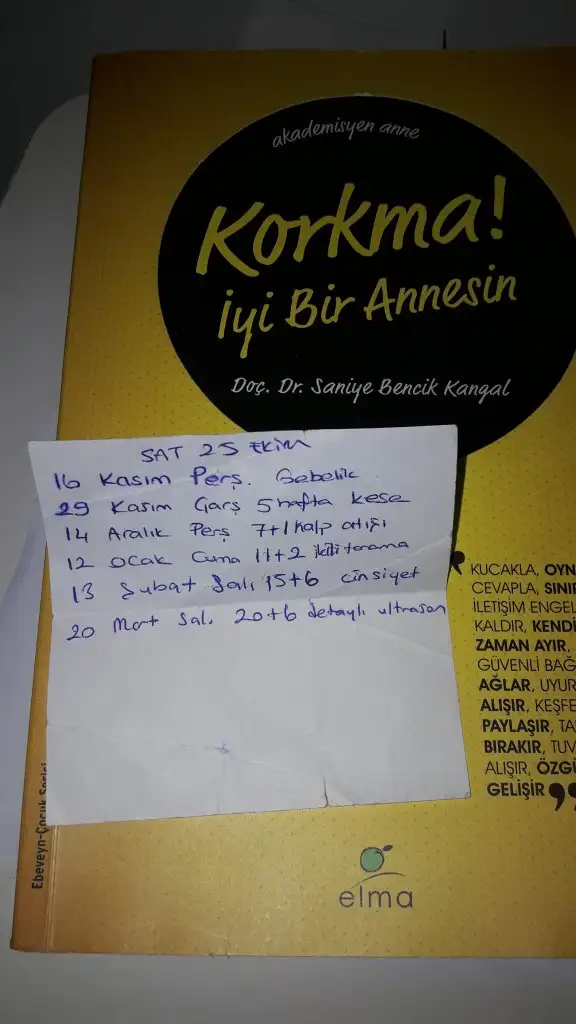 akademisyen anne
Korkma!
İyi Bir Annesin
Doç. Dr. Saniye Bencik Kangal
SAT 25 Ekim
16 Kasım Perş. Gebelik
29 Kasım Çarş 5 hafta kese
14 Aralık Perş 7+1 kalp atışı
12 Ocak Cuma 11+2 ikili tarama
13 Şubat Salı 15+6 cinsiyet
20 Mart Salı 20+6 detaylı ultrason
KUCAKLA, OYN
CEVAPLA, SINIR
İLETİŞİM ENGEL
KALDIR, KENDİ
ZAMAN AYIR,
GÜVENLİ BAĞ
AĞLAR, UYUR
ALIŞIR, KEŞFE
PAYLAŞIR, TA
BIRAKIR, TUV
ALIŞIR, ÖZGÜ
GELİŞİR
Ebeveyn-Çocuk Serisi
elma